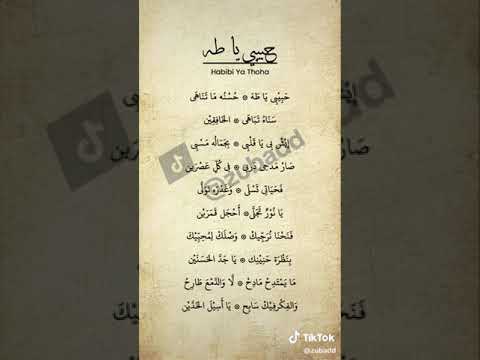 حبيبي يا طه
Habibi Ya Thoha
حَبِيْبِي يَا طٰهَ ۞ حُسْنُه مَا تَنَاهَى
سَنَاهُ تَبَاهَى ۞ الخَافِقَيْن
إِيْشْ بِي يَا قَلْبِي ۞ بِجَمَالُه مَسْبِي
صَارْ مَدْحِي دَرْبِي ۞ فِي كُلِّ عَصْرَيْن
فَحَيَاتِي تَسْلَى ۞ وَغَدْرُه تَوَلَّى
يَا نُوْرٌ تَجَلَّى ۞ أَخْجَلْ قَمَرَيْن
فَنَحْنَا نُرَجِّيكْ ۞ وَصْلَكْ لِمُحِبِّيْكْ
بِنَظْرَة حَنِيْنِك ۞ يَا جَدَّ الحَسَنَيْن
مَا يَمْتَدِحْ مَادِحْ ۞ لَا وَالدَّمْعْ طَارِحْ
وَالفِكْرفِيْكْ سَابِح ۞ يَا أَسِيْلَ الخَدَّيْن
@zubadd
TikTok
@zubadd